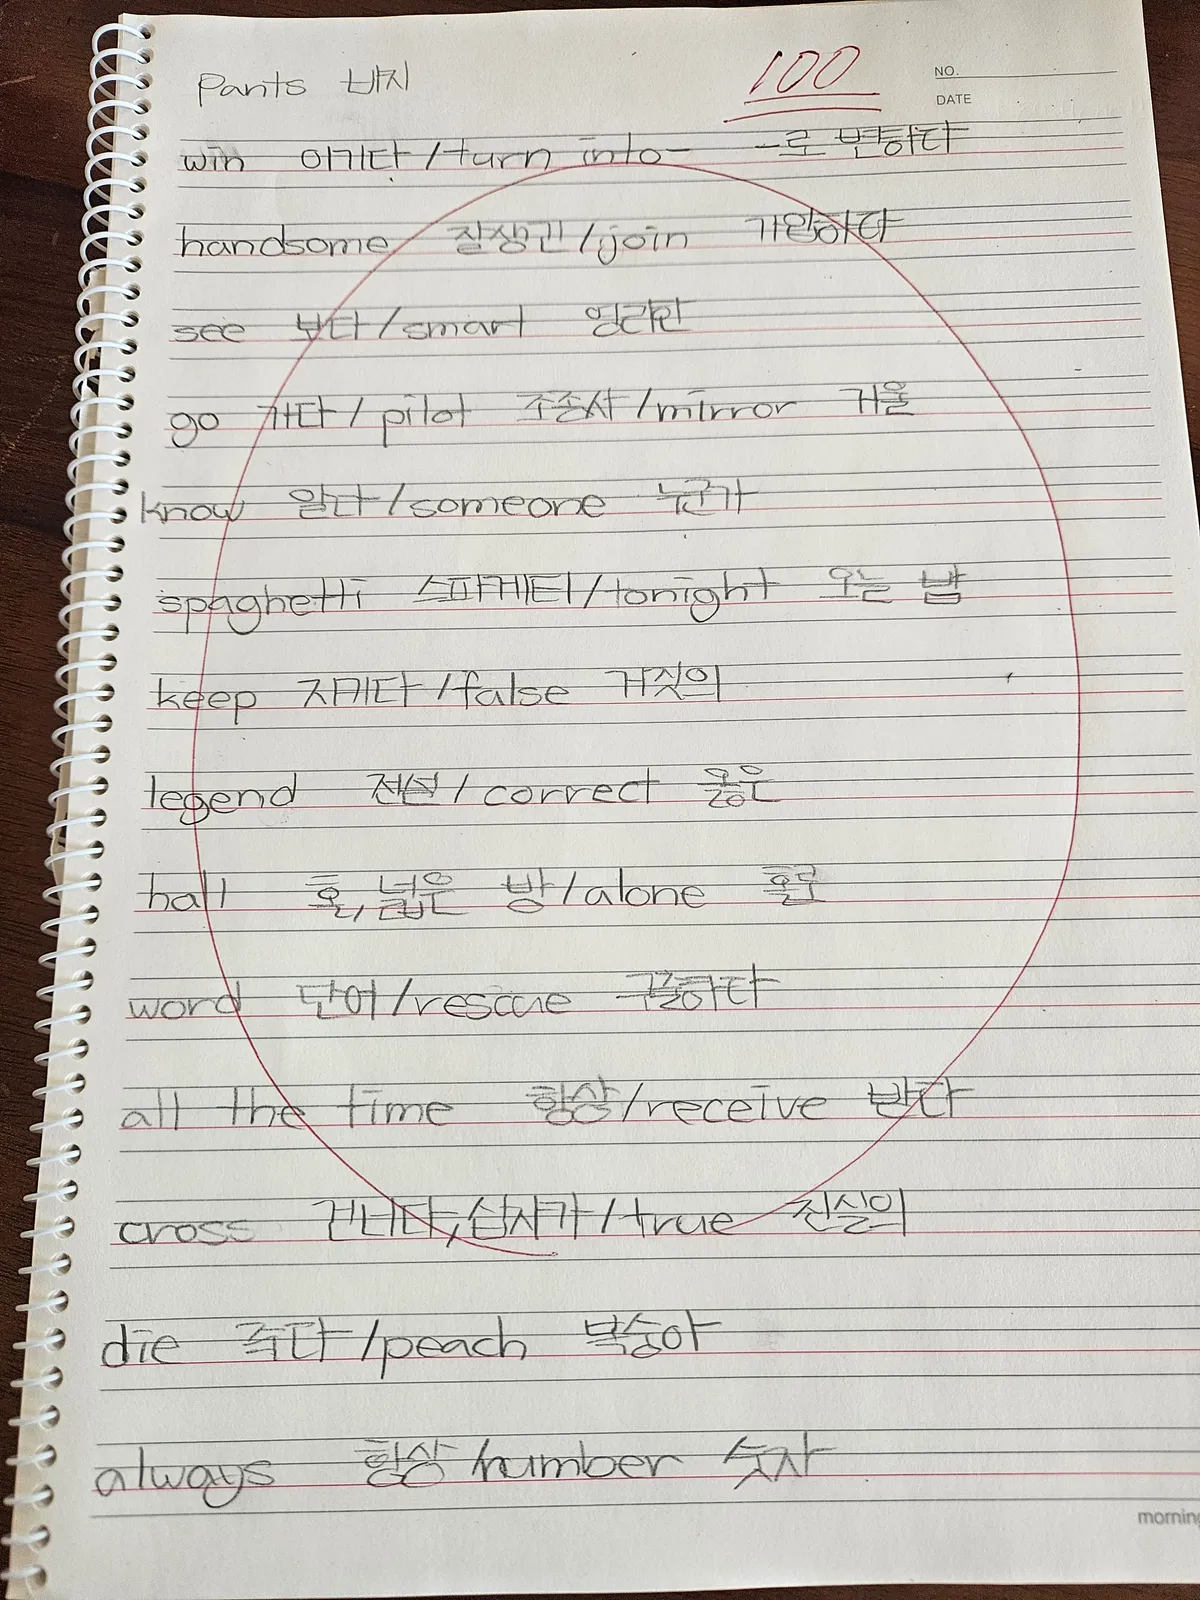 Pants 바지
100
NO.
DATE
win 이기다/turn into- -로 변하다
handsome 잘생긴/join 가입하다
see 보다/smart 영리한
go 가다/pilot 조종사/mirror 거울
know 알다/someone 누군가
spaghetti 스파게티/tonight 오늘 밤
keep 지키다/false 거짓의
legend 전설/correct 옳은
hall 홀, 넓은 방/alone 홀로
word 단어/rescue 구출하다
all the time 항상/receive 받다
cross 건너다, 십자가/true 진실의
die 죽다/peach 복숭아
always 항상/number 숫자
morning